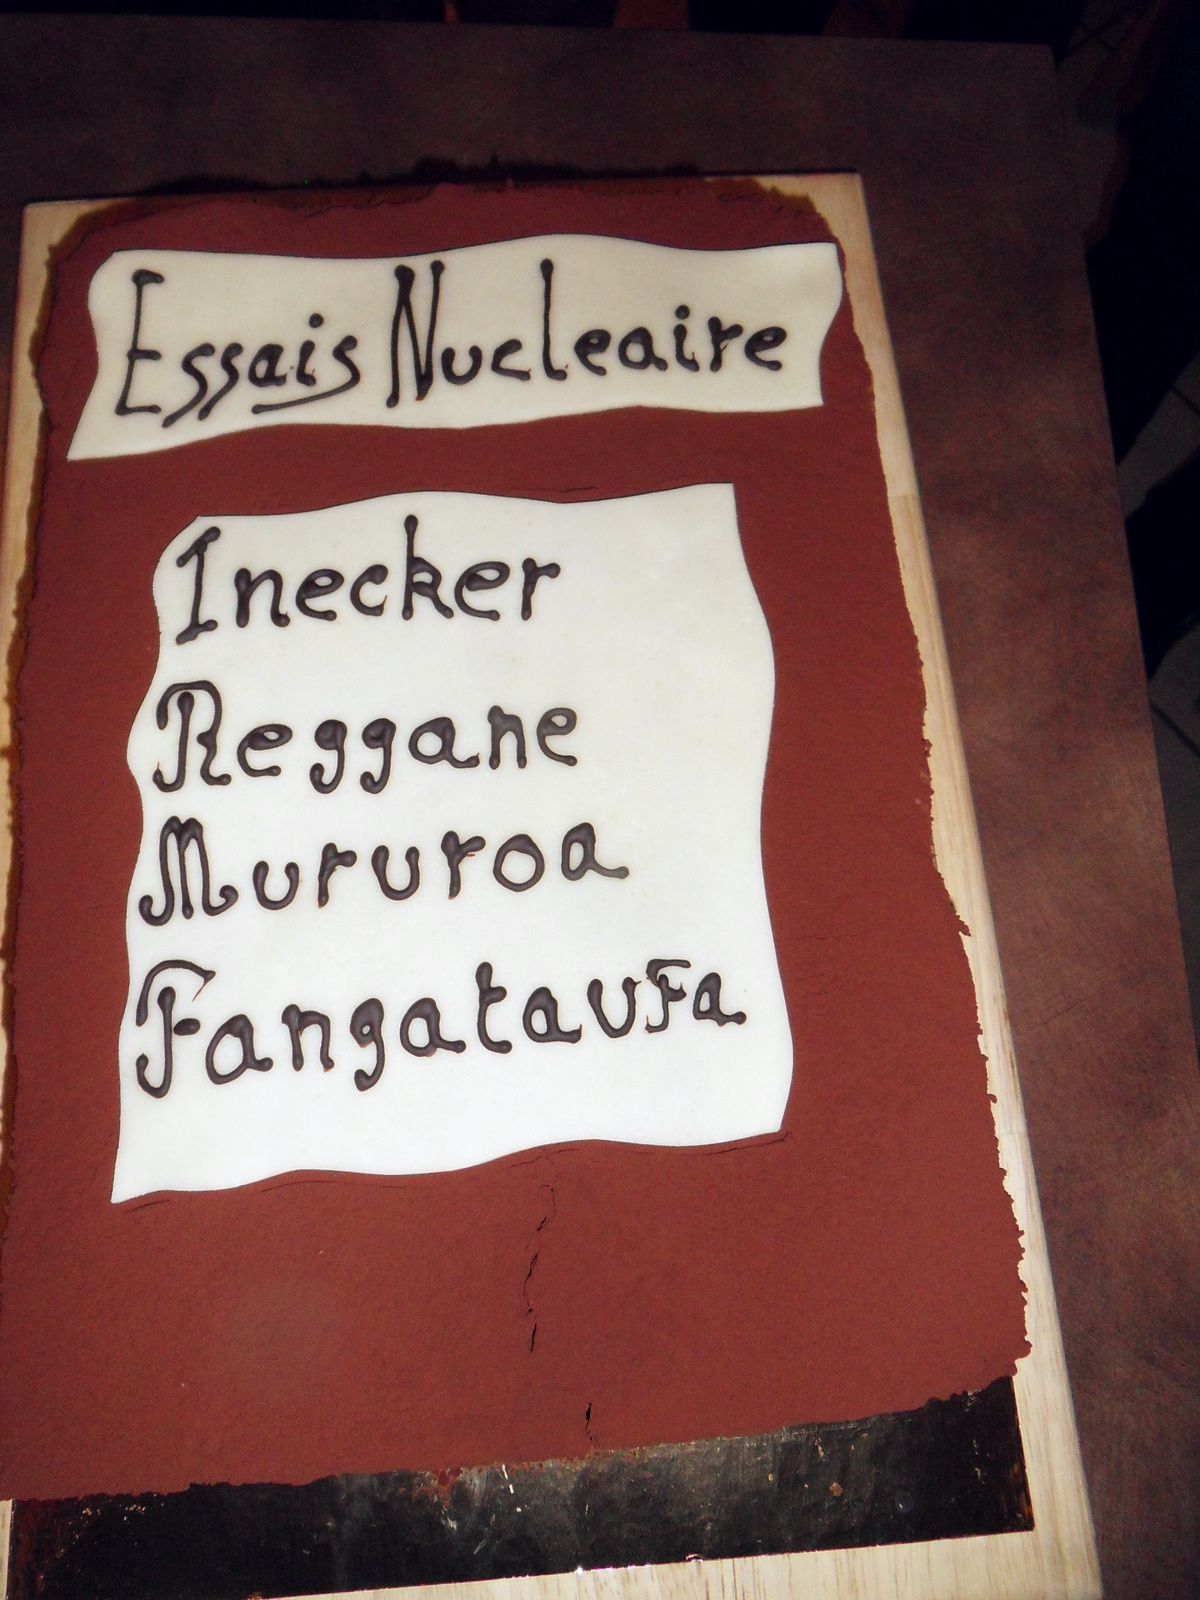 Essais Nucleaire
Inecker
Reggane
Mururoa
Fangataufa